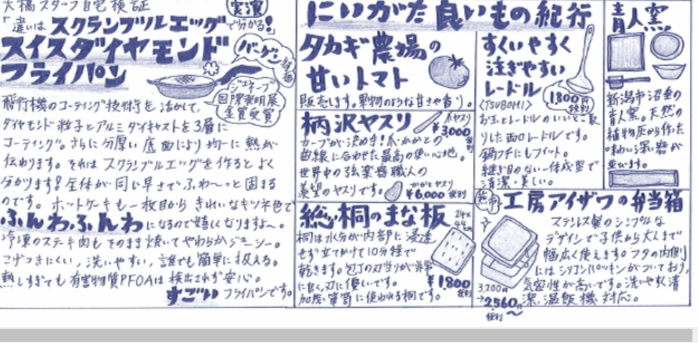 大橋スタッフ自宅検証 実演
「違いは、スクランブルエッグで分かる!
スイスダイヤモンド
フライパン
バーゲン特価
ジュネーブ
国際発明展
金賞受賞!
飛行機のコーティング技術を活かして、
ダイヤモンド粒子とアルミダイキャストを3層に
コーティング。さらに分厚い底面により均一に熱が
伝わります。それはスクランブルエッグを作るとよく
分かります!全体が同じ早さでふわ〜っと固まる
のです。ホットケーキも一枚目からきれいなキツネ色で
ふんわふんわになるので嬉しくなりますよ〜。
冷凍のステーキ肉もそのまま焼いてやわらかジューシー。
こげつきにくい、洗いやすい、誰でも簡単に扱える。
熱しすぎても有害物質PFOAは検出されず安心。
すごいフライパンです。
にいがた良いもの紀行
タカギ農場の
甘いトマト
販売します。果物のような甘さや香り。
柄沢ヤスリ
爪ヤスリ
¥3,000税別
カーブが決め手!爪・かかとの
曲線に合わせた最高の使い心地。
世界中の弦楽器職人の
羨望のヤスリです。
かかとヤスリ
¥6,000税別
総桐のまな板
24×
桐は水分が内部に浸透
せず立てかけて10分程で
乾きます。包丁の刃当りが非常
に良く刃に優しいです。
¥1,800
税別
加茂箪笥に使われる桐です。
すくいやすく
注ぎやすい
レードル
(TSUBOMI)
1,300円
税別
お玉とレードルのいいとこ取
りした両口レードルです。
鍋フチにもフィット。
継ぎ目のない一体成型で
清潔・美しい。
青人窯
新潟市沼垂の
青人窯。天然の
植物灰から作った
味わい深い器が
並びます。
工房アイザワの弁当箱
ステンレス製のシンプルな
デザインで子供から大人まで
幅広く使えます。フタの内側
にはシリコンパッキンがついており
気密性が高いです。洗いやすく清
潔、温飯機対応。
3,200円
→2,560円〜
税別